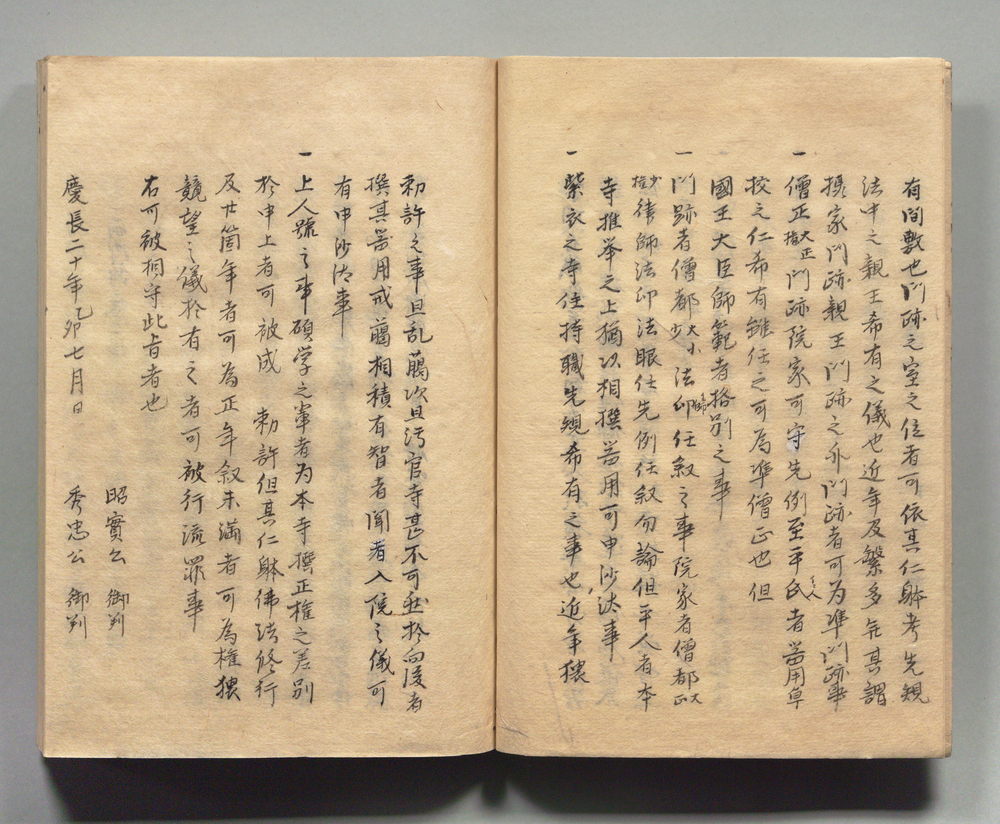 有間敷也門跡之室之位者可依其仁躰考先規
法中之親王希有之儀也近年及繁多無其謂
摂家門跡親王門跡之外門跡者可為準門跡事
一 僧正大正権門跡院家可守先例至平民者器用卓
抜之仁希有雖任之可為準僧正也但
国王大臣師範者格別之事
一 門跡者僧都大小少法印任叙之事院家者僧都大正
少権律師法印法眼任先例任叙勿論但平人者本
寺推挙之上猶以相撰器用可申沙汰事
一 紫衣之寺住持職先規希有之事也近年猥
勅許之事且乱﨟次且汚官寺甚不可然於向後者
撰其器用戒﨟相積有智者聞者入院之儀可
有申沙汰事
一 上人號之事碩学之輩者为本寺撰正権之差別
於申上者可被成 勅許但其仁躰佛法修行
及廿箇年者可為正年叙未満者可為権猥
競望之儀於有之者可被行流罪事
右可被相守此旨者也
慶長二十年乙卯七月日
昭實公 御判
秀忠公 御判